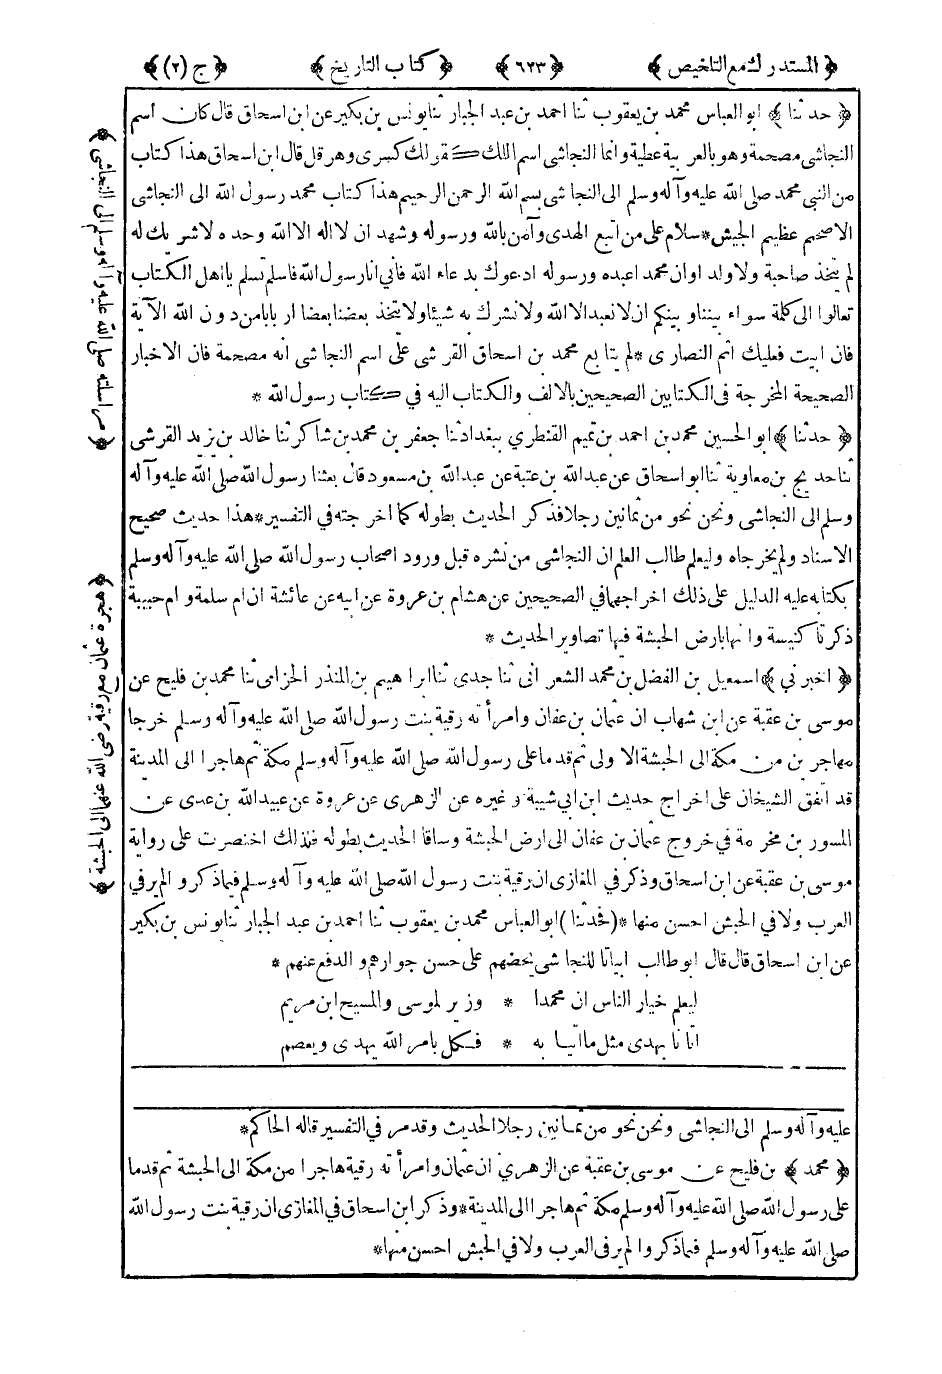 ﴿ المستدرك مع التلخيص ﴾ ﴿ ٦٢٣ ﴾ ﴿ كتاب التاريخ ﴾ ﴿ ج (٢) ﴾
﴿ حدثنا ﴾ ابو العباس محمد بن يعقوب ثنا احمد بن عبد الجبار ثنا يونس بن بكير عن ابن اسحاق قال كان اسم
النجاشى مصحمة وهو بالعربية عطية وانما النجاشى اسم الملك كقولك كسرى وهرقل قال ابن اسحاق هذا كتاب
من النبى محمد صلى الله عليه وآله وسلم الى النجاشى بسم الله الرحمن الرحيم هذا كتاب محمد رسول الله الى النجاشى
الاصحم عظيم الجيش * سلام على من اتبع الهدى وآمن بالله ورسوله وشهد ان لا اله الا الله وحده لا شريك له
لم يتخذ صاحبة ولا ولدا وان محمدا عبده ورسوله ادعوك بدعاء الله فانى انا رسول الله فاسلم تسلم يا اهل الكتاب
تعالوا الى كلمة سواء بيننا وبينكم ان لا نعبد الا الله ولا نشرك به شيئا ولا يتخذ بعضنا بعضا اربابا من دون الله الآية
فان ابيت فعليك اثم النصارى * لم يتابع محمد بن اسحاق القرشى على اسم النجاشى انه مصحمة فان الاخبار
الصحيحة المخرجة فى الكتابين الصحيحين بالالف والكتاب اليه فى كتاب رسول الله *
﴿ حدثنا ﴾ ابو الحسين محمد بن احمد بن تميم القنطري ببغداد ثنا جعفر بن محمد بن شاكر ثنا خالد بن يزيد القرشى
ثنا حديج بن معاوية ثنا ابو اسحاق عن عبد الله بن عتبة عن عبد الله بن مسعود قال بعثنا رسول الله صلى الله عليه وآله
وسلم الى النجاشى ونحن نحو من ثمانين رجلا فذكر الحديث بطوله كما اخرجته في التفسير * هذا حديث صحيح
الاسناد ولم يخرجاه وليعلم طالب العلم ان النجاشى من نشره قبل ورود اصحاب رسول الله صلى الله عليه وآله وسلم
بكتابه عليه الدليل على ذلك اخراجهما في الصحيحين عن هشام بن عروة عن ابيه عن عائشة ان ام سلمة وام حبيبة
ذكرتا كنيسة وانها بارض الحبشة فيها تصاوير الحديث *
﴿ اخبرني ﴾ اسمعيل بن الفضل بن محمد الشعرانى ثنا جدى ثنا ابراهيم بن المنذر الحزامى ثنا محمد بن فليح عن
موسى بن عقبة عن ابن شهاب ان عثمان بن عفان وامرأته رقية بنت رسول الله صلى الله عليه وآله وسلم خرجا
مهاجرين من مكة الى الحبشة الاولى ثم قدما على رسول الله صلى الله عليه وآله وسلم مكة ثم هاجرا الى المدينة
قد اتفق الشيخان على اخراج حديث ابن ابي شيبة وغيره عن الزهرى عن عروة عن عبيد الله بن عدى عن
المسور بن مخرمة في خروج عثمان بن عفان الى ارض الحبشة وساقا الحديث بطوله فلذلك اختصرت على رواية
موسى بن عقبة عن ابن اسحاق وذكر في المغازى ان رقية بنت رسول الله صلى الله عليه وآله وسلم فيما ذكروا لم ير في
العرب ولا في الحبش احسن منها * ( فحدثنا ) ابو العباس محمد بن يعقوب ثنا احمد بن عبد الجبار ثنا يونس بن بكير
عن ابن اسحاق قال قال ابو طالب ابياتا للنجاشى يحضهم على حسن جوارهم والدفع عنهم *
ليعلم خيار الناس ان محمدا * وزير لموسى والمسيح ابن مريم
اتانا بهدى مثل ما اتيا به * فكل بامر الله يهدى ويعصم
عليه وآله وسلم الى النجاشى ونحن نحو من ثمانين رجلا الحديث وقد مر في التفسير قاله الحاكم *
﴿ محمد ﴾ بن فليح عن موسى بن عقبة عن الزهري ان عثمان وامرأته رقية هاجرا من مكة الى الحبشة ثم قدما
على رسول الله صلى الله عليه وآله وسلم مكة ثم هاجرا الى المدينة * وذكر ابن اسحاق في المغازى ان رقية بنت رسول الله
صلى الله عليه وآله وسلم فيما ذكروا لم ير فى العرب ولا في الحبش احسن منها *
﴿ مراسلته صلى الله عليه وآله وسلم الى النجاشى ﴾
﴿ هجرة عثمان مع رقية رضى الله عنهما الى الحبشة ﴾